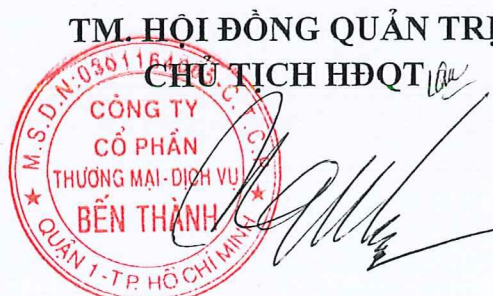 TM. HỘI ĐỒNG QUẢN TRỊ
CHỦ TỊCH HĐQT
M.S.D.N:
C.T.C.P
CÔNG TY
CỔ PHẦN
THƯƠNG MẠI - DỊCH VỤ
BẾN THÀNH
QUẬN 1 - T.P. HỒ CHÍ MINH